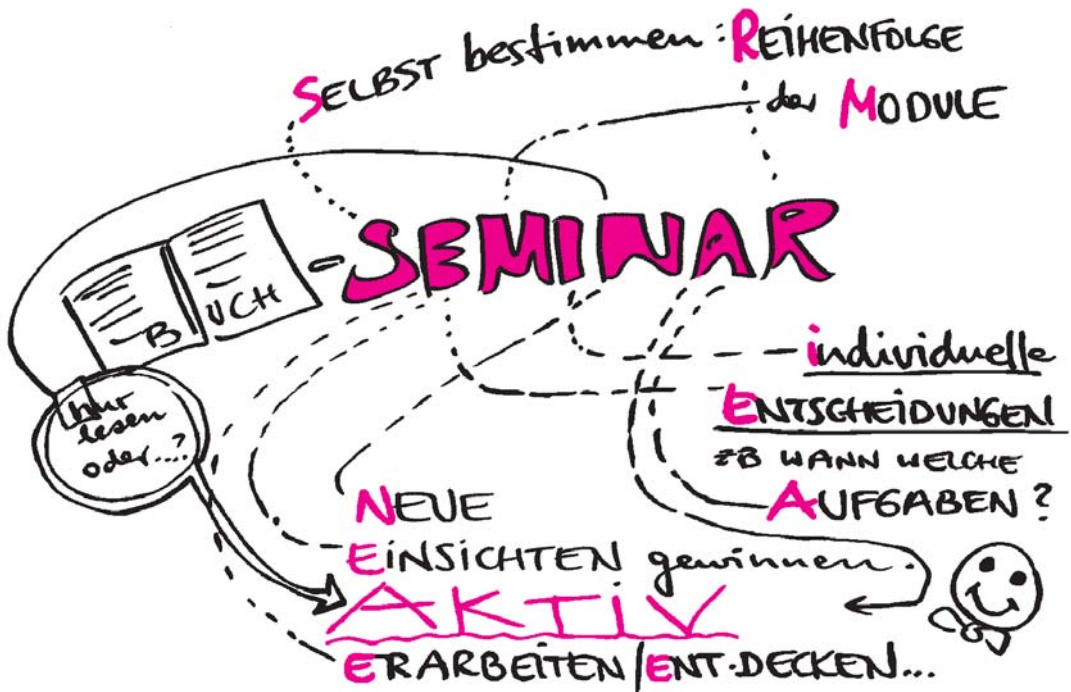 SELBST bestimmen: REiHENFOLGE
der MODULE
BUCH-SEMINAR
individuelle
ENTSCHEiDUNGEN
zB WANN WELCHE
AUFGABEN?
nur
lesen
oder....?
NEUE
EiNSICHTEN gewinnen.
AKTiV
ERARBEiTEN/ENT-DECKEN...